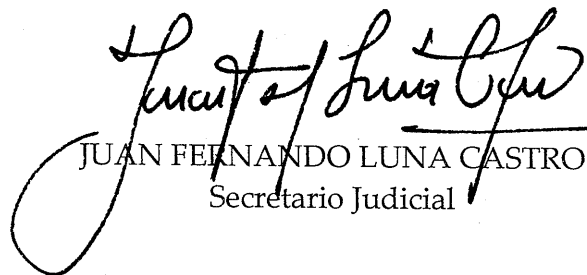 JUAN FERNANDO LUNA CASTRO
Secretario Judicial